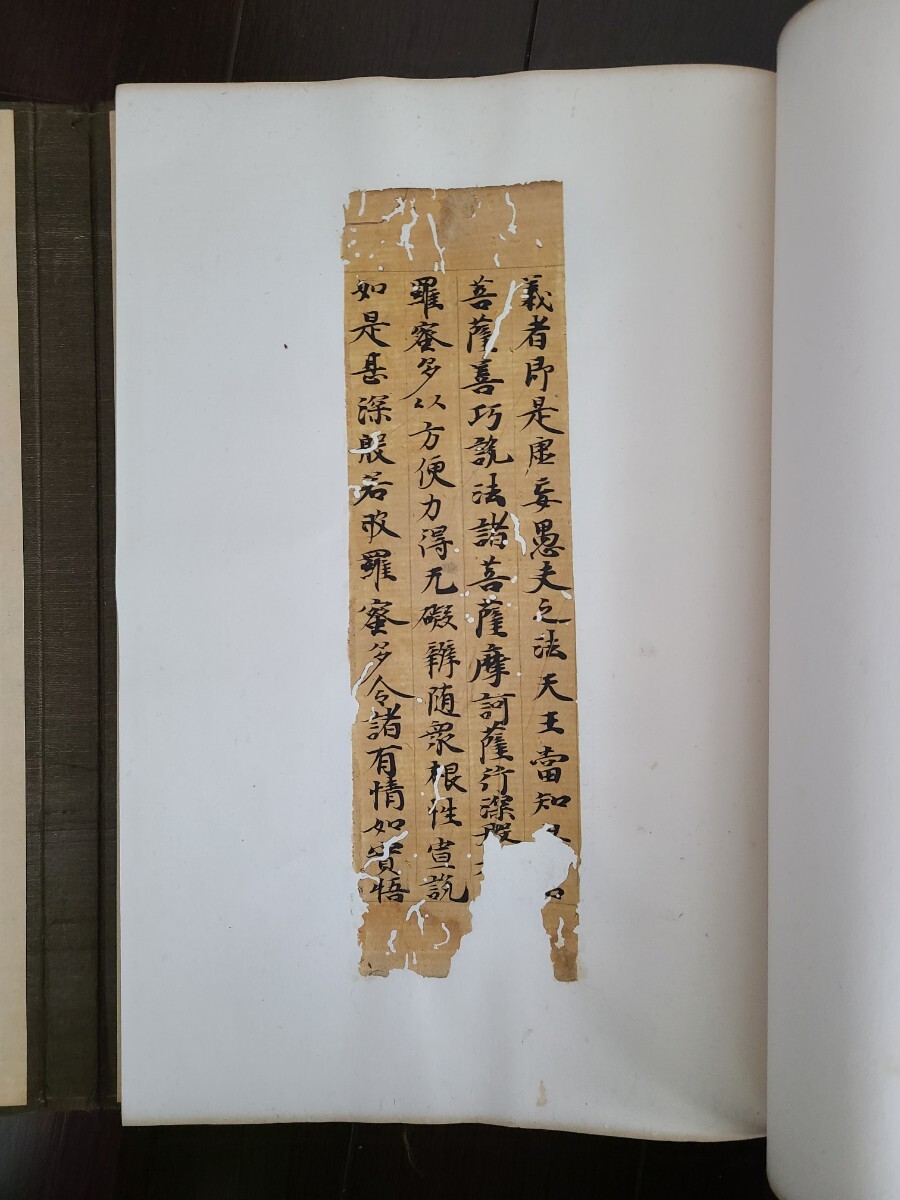 義者即是虛妄愚夫之法天王當知
菩薩善巧說法諸菩薩摩訶薩行深般
羅蜜多以方便力得无礙辯随衆根性宣說
如是甚深般若波羅蜜多令諸有情如實悟